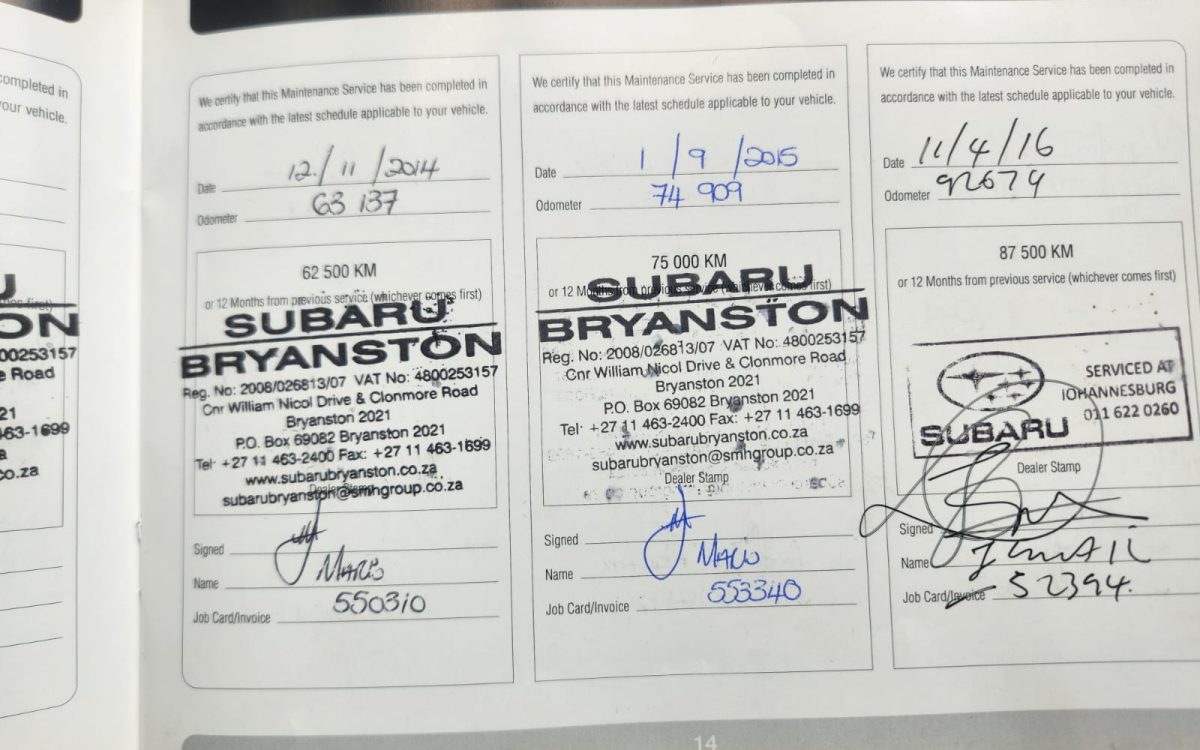 completed in
your vehicle.
ON
00253157
e Road
21
463-1699
a
co.za
We certify that this Maintenance Service has been completed in
accordance with the latest schedule applicable to your vehicle.
Date 12/11/2014
Odometer 63 137
62 500 KM
or 12 Months from previous service (whichever comes first)
SUBARU
BRYANSTON
Reg. No: 2008/026813/07 VAT No: 4800253157
Cnr William Nicol Drive & Clonmore Road
Bryanston 2021
P.O. Box 69082 Bryanston 2021
Tel: +27 11 463-2400 Fax: +27 11 463-1699
www.subarubryanston.co.za
subarubryanston@smhgroup.co.za
Dealer Stamp
Signed
Name Mario
Job Card/Invoice 550310
We certify that this Maintenance Service has been completed in
accordance with the latest schedule applicable to your vehicle.
Date 1/9/2015
Odometer 74 909
75 000 KM
or 12 Months from previous service (whichever comes first)
SUBARU
BRYANSTON
Reg. No: 2008/026813/07 VAT No: 4800253157
Cnr William Nicol Drive & Clonmore Road
Bryanston 2021
P.O. Box 69082 Bryanston 2021
Tel: +27 11 463-2400 Fax: +27 11 463-1699
www.subarubryanston.co.za
subarubryanston@smhgroup.co.za
Dealer Stamp
Signed
Name Mario
Job Card/Invoice 553340
We certify that this Maintenance Service has been completed in
accordance with the latest schedule applicable to your vehicle.
Date 11/4/16
Odometer 92679
87 500 KM
or 12 Months from previous service (whichever comes first)
SERVICED AT
JOHANNESBURG
011 622 0260
SUBARU
Dealer Stamp
Signed
Name
Job Card/Invoice 52394.
14